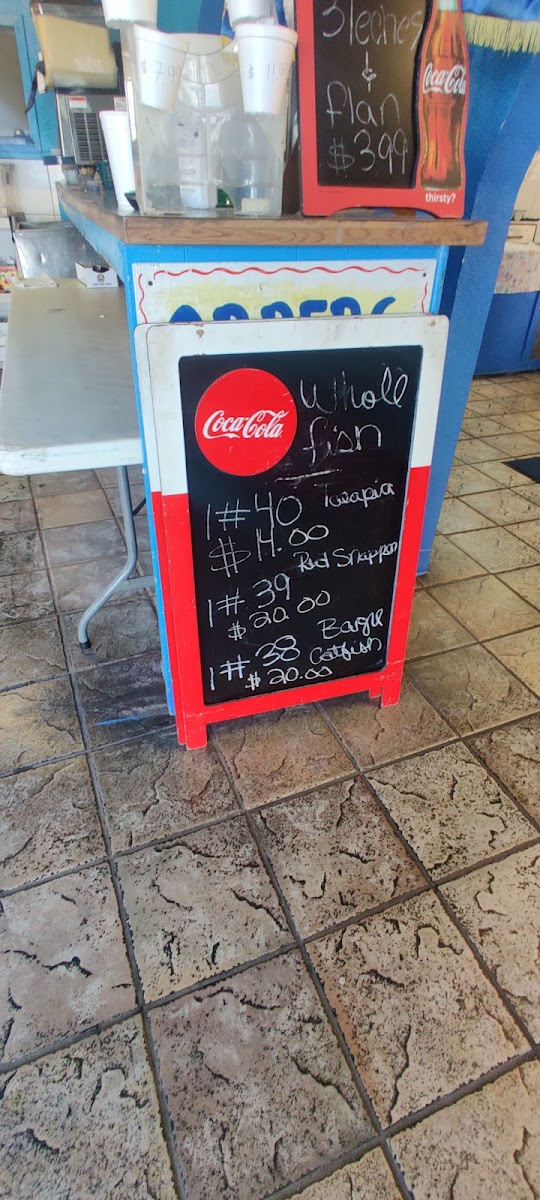 3leches
&
flan
$3.99
Coca-Cola
thirsty?
ORDERS
Coca-Cola
Whole
fish
1# 40 Tilapia
$14.00
1# 39 Red Snapper
$20.00
1# 38 Bagre
Catfish
$20.00